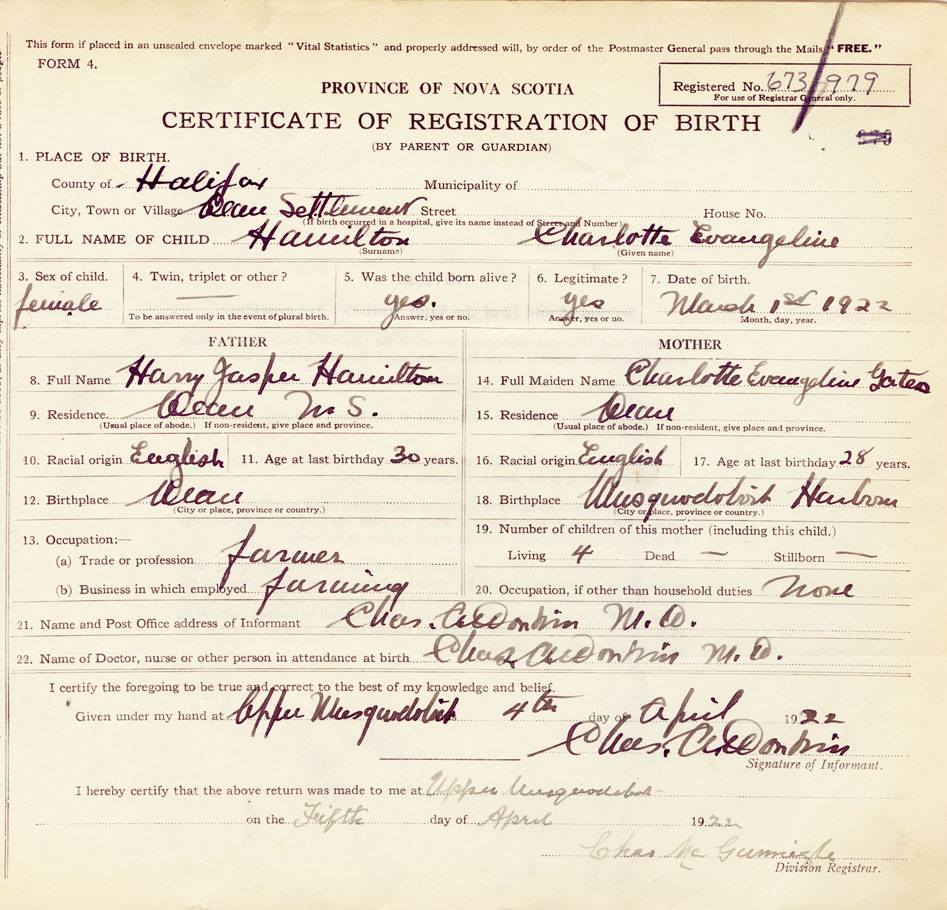 This form if placed in an unsealed envelope marked "Vital Statistics" and properly addressed will, by order of the Postmaster General pass through the Mails "FREE."
FORM 4.
PROVINCE OF NOVA SCOTIA
Registered No. 673/979
For use of Registrar General only.
CERTIFICATE OF REGISTRATION OF BIRTH
(BY PARENT OR GUARDIAN)
1. PLACE OF BIRTH.
County of Halifax Municipality of
City, Town or Village Dean Settlement Street House No.
(If birth occurred in a hospital, give its name instead of Street and Number)
2. FULL NAME OF CHILD Hamilton Charlotte Evangeline
(Surname) (Given name)
3. Sex of child. 4. Twin, triplet or other? 5. Was the child born alive? 6. Legitimate? 7. Date of birth.
female yes. yes March 1st 1922
To be answered only in the event of plural birth. Answer, yes or no. Answer, yes or no. Month, day, year.
FATHER MOTHER
8. Full Name Harry Jasper Hamilton 14. Full Maiden Name Charlotte Evangeline Gates
9. Residence Dean N. S. 15. Residence Dean
(Usual place of abode.) If non-resident, give place and province. (Usual place of abode.) If non-resident, give place and province.
10. Racial origin English 11. Age at last birthday 30 years. 16. Racial origin English 17. Age at last birthday 28 years.
12. Birthplace Dean 18. Birthplace Musquodoboit Harbour
(City or place, province or country.) (City or place, province or country.)
19. Number of children of this mother (including this child.)
13. Occupation:—
(a) Trade or profession farmer Living 4 Dead — Stillborn —
(b) Business in which employed farming 20. Occupation, if other than household duties None
21. Name and Post Office address of Informant Chas. Donkin M. D.
22. Name of Doctor, nurse or other person in attendance at birth Chas Donkin M. D.
I certify the foregoing to be true and correct to the best of my knowledge and belief.
Given under my hand at Upper Musquodoboit 4th day of April 1922
Chas. Donkin
Signature of Informant.
I hereby certify that the above return was made to me at Upper Musquodoboit
on the Fifth day of April 1922
Chas Mc
Division Registrar.